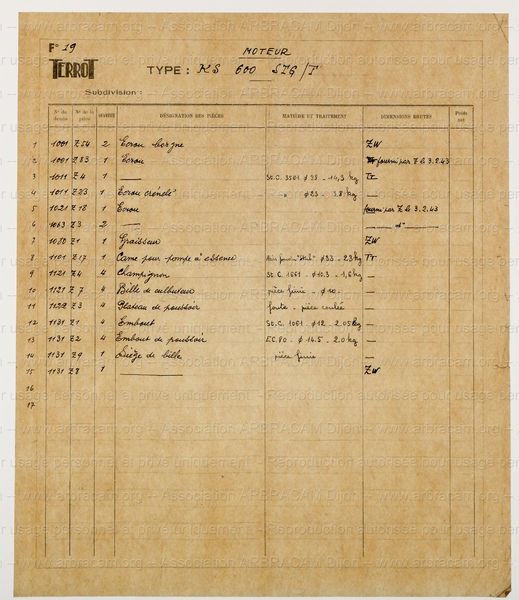 F° 19
MOTEUR
TERROT
TYPE : KS 600 STG/T
Subdivision :
N° du dessin N° de la pièce NOMBRE DÉSIGNATION DES PIÈCES MATIÈRE ET TRAITEMENT DIMENSIONS BRUTES Poids net
1 1001 Z 54 2 Ecrou borgne ZW
2 1001 Z 83 1 Ecrou fourni par Z le 3.2.43
3 1011 Z 4 1 — St.C. 3561 ø 38 - 14,3 kg Tr
4 1011 Z 23 1 Ecrou crénelé " ø 23 - 3.8 kg —
5 1021 Z 18 1 Ecrou fourni par Z le 3.2.43
6 1063 Z 3 2 — — d° —
7 1080 Z 1 1 Graisseur ZW
8 1101 Z 17 1 Came pour pompe à essence ø 33 - 23 kg Tr
9 1121 Z 4 4 Champignon St.C. 1061 - ø 10.3 - 1,6 kg —
10 1121 Z 7 4 Bille de culbuteur pièce finie - ø 10. —
11 1129 Z 3 4 Plateau de poussoir fonte - pièce coulée —
12 1131 Z 1 4 Embout St.C. 1061 - ø 12 - 2.05 kg —
13 1131 Z 2 4 Embout de poussoir E.C. 80. - ø 14.5 - 2.0 kg —
14 1131 Z 9 1 Siège de bille pièce finie —
15 1131 Z 8 1 — ZW
16
17
www.arbracam.org -- Association ARBRACAM Dijon -- Reproduction autorisée pour usage personnel et privé uniquement